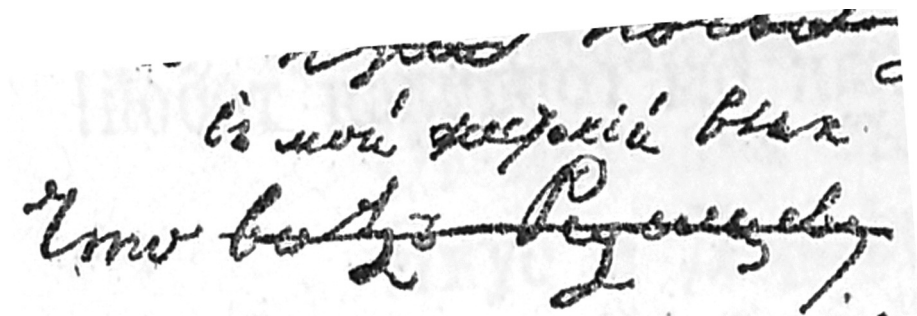 въ мой жестокій вѣкъ
Что вслѣдъ Радищеву